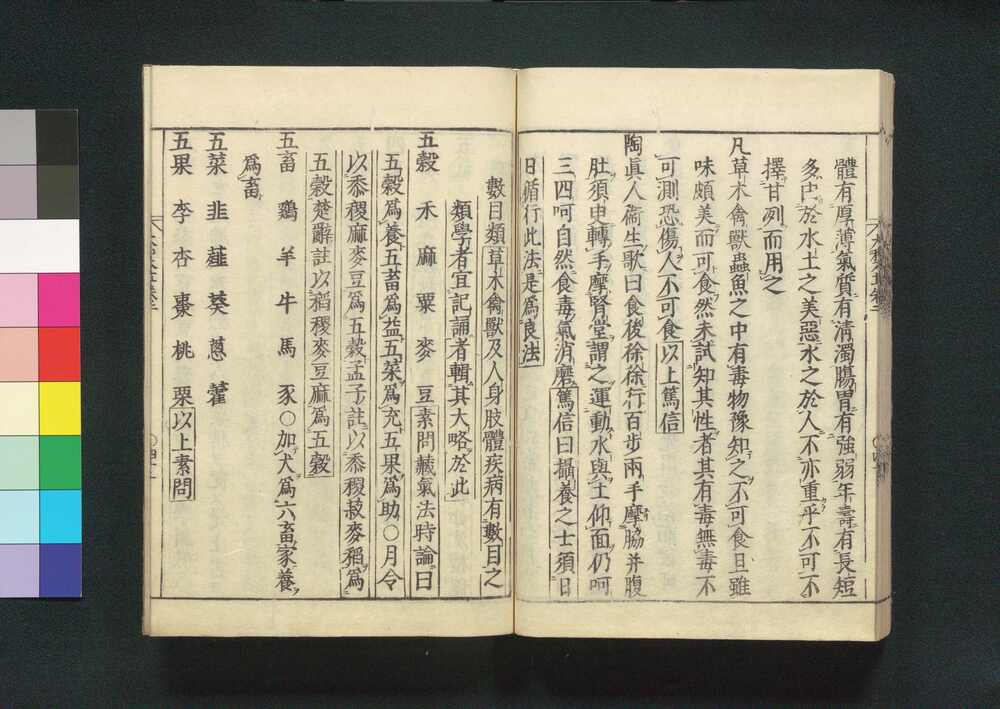 體有厚薄氣質有清濁腸胃有強弱年壽有長短
多由於水土之美惡水之於人不亦重乎不可不
擇甘冽而用之
凡草木禽獸蟲魚之中有毒物豫知之不可食且雖
味頗美而可食然未試知其性者其有毒無毒不
可測恐傷人不可食以上篤信
陶眞人衞生歌曰食後徐徐行百步兩手摩脇并腹
肚須臾轉手摩腎堂謂之運動水與土仰面仍呵
三四呵自然食毒氣消磨篤信曰攝養之士須日
日循行此法是爲良法
數目類草木禽獸及人身肢體疾病有數目之
類學者宜記誦者輯其大略於此
五穀 禾 麻 粟 麥 豆素問藏氣法時論曰
五穀爲養五畜爲益五菜爲充五果爲助○月令
以黍稷麻麥豆爲五穀孟子註以黍稷菽麥稻爲
五穀楚辭註以稻稷麥豆麻爲五穀
五畜 鷄 羊 牛 馬 豕○加犬爲六畜家養
爲畜
五菜 韭 薤 葵 蔥 藿
五果 李 杏 棗 桃 栗以上素問